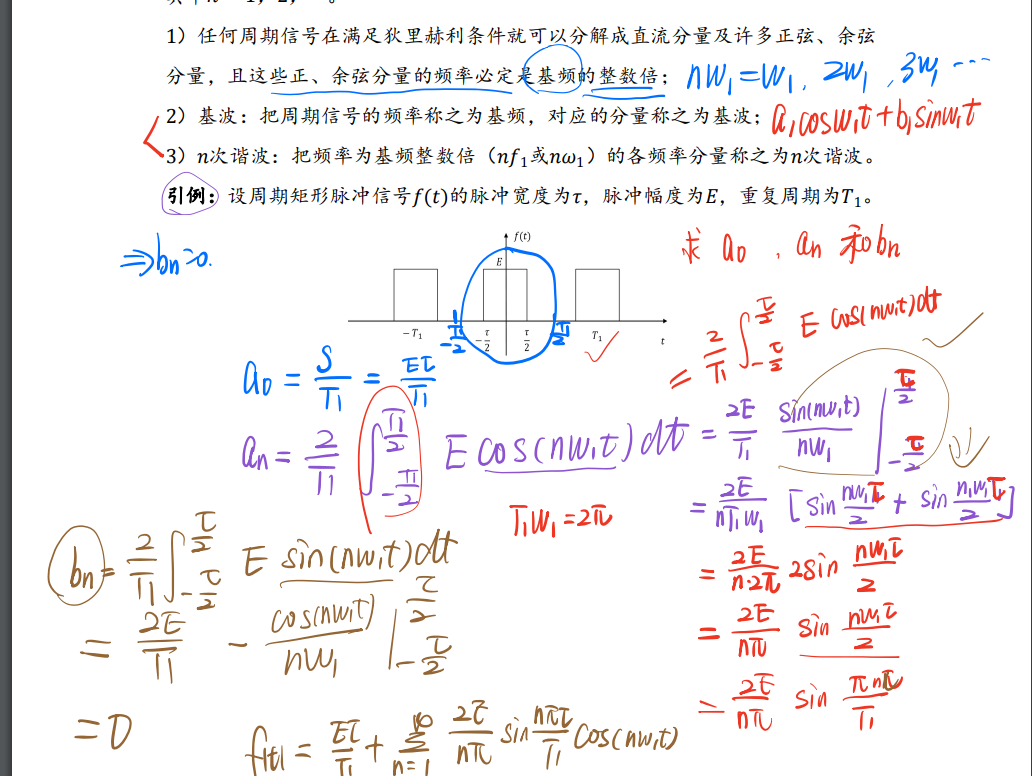 1）任何周期信号在满足狄里赫利条件就可以分解成直流分量及许多正弦、余弦
分量，且这些正、余弦分量的频率必定是基频的整数倍； nw₁=w₁, 2w₁, 3w₁ ⋯
2）基波：把周期信号的频率称之为基频，对应的分量称之为基波； a₁cosw₁t+b₁sinw₁t
3）n次谐波：把频率为基频整数倍（nf₁或nω₁）的各频率分量称之为n次谐波。
引例：设周期矩形脉冲信号f(t)的脉冲宽度为τ，脉冲幅度为E，重复周期为T₁。
⇒bn=0.
f(t)
E
-T₁ -T₁/2 -τ/2 τ/2 T₁/2 T₁ t
求 a₀ , an 和 bn
a₀ = S/T₁ = Eτ/T₁
an = 2/T₁ ∫_{-T₁/2}^{T₁/2} E cos(nw₁t) dt
= 2/T₁ ∫_{-τ/2}^{τ/2} E cos(nw₁t) dt
= 2E/T₁ sin(nw₁t)/nw₁ |_{-τ/2}^{τ/2}
= 2E/nT₁w₁ [sin nw₁τ/2 + sin nw₁τ/2]
T₁w₁=2π
= 2E/n·2π 2sin nw₁τ/2
= 2E/nπ sin nw₁τ/2
= 2E/nπ sin πnτ/T₁
bn = 2/T₁ ∫_{-τ/2}^{τ/2} E sin(nw₁t)dt
= 2E/T₁ - cos(nw₁t)/nw₁ |_{-τ/2}^{τ/2}
= 0
f(t) = Eτ/T₁ + ∑_{n=1}^{∞} 2E/nπ sin nπτ/T₁ cos(nw₁t)